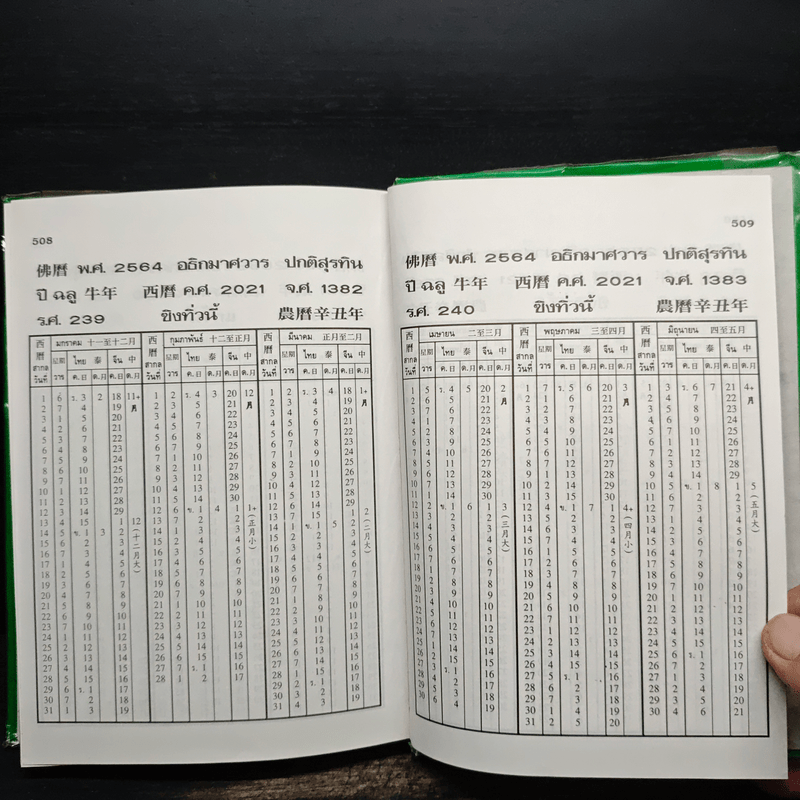 508
佛曆 พ.ศ. 2564 อธิกมาศวาร ปกติสุรทิน
ปี ฉลู 牛年 西曆 ค.ศ. 2021 จ.ศ. 1382
ร.ศ. 239 ขิงทิ่วนี้ 農曆辛丑年
西曆 สากล วันที่ มกราคม 十一至十二月 西曆 สากล วันที่ กุมภาพันธ์ 十二至正月 西曆 สากล วันที่ มีนาคม 正月至二月
星期 ไทย 泰 จีน 中 星期 ไทย 泰 จีน 中 星期 ไทย 泰 จีน 中
วาร ค.日 ด.月 ค.日 ด.月 วาร ค.日 ด.月 ค.日 ด.月 วาร ค.日 ด.月 ค.日 ด.月
1 6 ร. 3 2 18 11+ 1 2 ร. 4 3 20 12 1 2 ร. 3 4 18 1+
2 7 4 19 月 2 3 5 21 月 2 3 4 19 月
3 1 5 20 3 4 6 22 3 4 5 20
4 2 6 21 4 5 7 23 4 5 6 21
5 3 7 22 5 6 8 24 5 6 7 22
6 4 8 23 6 7 9 25 6 7 8 23
7 5 9 24 7 1 10 26 7 1 9 24
8 6 10 25 8 2 11 27 8 2 10 25
9 7 11 26 9 3 12 28 9 3 11 26
10 1 12 27 10 4 13 29 10 4 12 27
11 2 13 28 11 5 14 30 11 5 13 28
12 3 14 29 12 6 ข. 1 4 1 1+ 12 6 14 29
13 4 15 1 12 13 7 2 2 (正月小) 13 7 15 1 2
14 5 ข. 1 3 2 (十二月大) 14 1 3 3 14 1 ข. 1 5 2 (二月大)
15 6 2 3 15 2 4 4 15 2 2 3
16 7 3 4 16 3 5 5 16 3 3 4
17 1 4 5 17 4 6 6 17 4 4 5
18 2 5 6 18 5 7 7 18 5 5 6
19 3 6 7 19 6 8 8 19 6 6 7
20 4 7 8 20 7 9 9 20 7 7 8
21 5 8 9 21 1 10 10 21 1 8 9
22 6 9 10 22 2 11 11 22 2 9 10
23 7 10 11 23 3 12 12 23 3 10 11
24 1 11 12 24 4 13 13 24 4 11 12
25 2 12 13 25 5 14 14 25 5 12 13
26 3 13 14 26 6 15 15 26 6 13 14
27 4 14 15 27 7 ร. 1 16 27 7 14 15
28 5 15 16 28 1 2 17 28 1 15 16
29 6 ร. 1 17 29 2 ร. 1 17
30 7 2 18 30 3 2 18
31 1 3 19 31 4 3 19
509
佛曆 พ.ศ. 2564 อธิกมาศวาร ปกติสุรทิน
ปี ฉลู 牛年 西曆 ค.ศ. 2021 จ.ศ. 1383
ร.ศ. 240 ขิงทิ่วนี้ 農曆辛丑年
西曆 สากล วันที่ เมษายน 二至三月 西曆 สากล วันที่ พฤษภาคม 三至四月 西曆 สากล วันที่ มิถุนายน 四至五月
星期 ไทย 泰 จีน 中 星期 ไทย 泰 จีน 中 星期 ไทย 泰 จีน 中
วาร ค.日 ด.月 ค.日 ด.月 วาร ค.日 ด.月 ค.日 ด.月 วาร ค.日 ด.月 ค.日 ด.月
1 5 ร. 4 5 20 2 1 7 ร. 5 6 20 3 1 3 ร. 6 7 21 4+
2 6 5 21 月 2 1 6 21 月 2 4 7 22 月
3 7 6 22 3 2 7 22 3 5 8 23
4 1 7 23 4 3 8 23 4 6 9 24
5 2 8 24 5 4 9 24 5 7 10 25
6 3 9 25 6 5 10 25 6 1 11 26
7 4 10 26 7 6 11 26 7 2 12 27
8 5 11 27 8 7 12 27 8 3 13 28
9 6 12 28 9 1 13 28 9 4 14 29
10 7 13 29 10 2 14 29 10 5 ข. 1 8 1 5
11 1 14 30 11 3 15 30 11 6 2 2 (五月大)
12 2 ข. 1 6 1 3 12 4 ข. 1 7 1 4+ 12 7 3 3
13 3 2 2 (三月大) 13 5 2 2 (四月小) 13 1 4 4
14 4 3 3 14 6 3 3 14 2 5 5
15 5 4 4 15 7 4 4 15 3 6 6
16 6 5 5 16 1 5 5 16 4 7 7
17 7 6 6 17 2 6 6 17 5 8 8
18 1 7 7 18 3 7 7 18 6 9 9
19 2 8 8 19 4 8 8 19 7 10 10
20 3 9 9 20 5 9 9 20 1 11 11
21 4 10 10 21 6 10 10 21 2 12 12
22 5 11 11 22 7 11 11 22 3 13 13
23 6 12 12 23 1 12 12 23 4 14 14
24 7 13 13 24 2 13 13 24 5 15 15
25 1 14 14 25 3 14 14 25 6 ร. 1 16
26 2 15 15 26 4 15 15 26 7 2 17
27 3 ร. 1 16 27 5 ร. 1 16 27 1 3 18
28 4 2 17 28 6 2 17 28 2 4 19
29 5 3 18 29 7 3 18 29 3 5 20
30 6 4 19 30 1 4 19 30 4 6 21
31 2 5 20